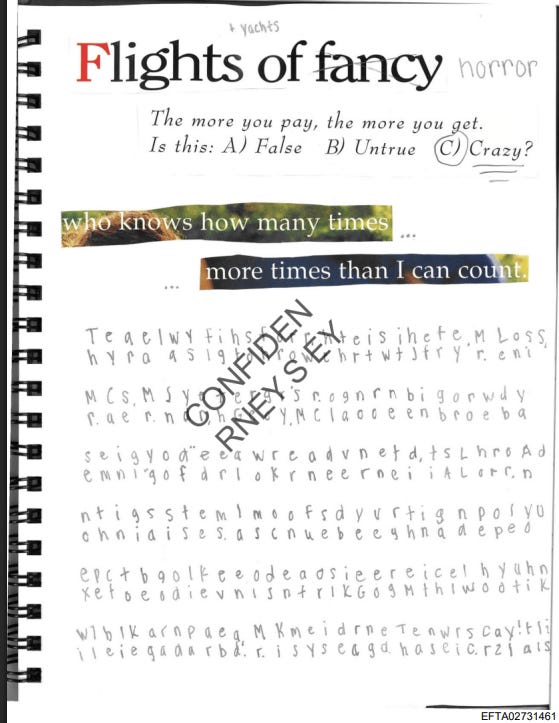 + yachts
Flights of fancy horror
The more you pay, the more you get.
Is this: A) False B) Untrue C) Crazy?
who knows how many times ...
... more times than I can count.
T e a e l w y f i h s
t e i s i h e t e , M L o s s,
M C s, M J y
r. o g n r n b i g o r w d y
r. a e r. n
Y, M C l a o o e e n b r o e b a
s e i g y o d " e e a w r e a d v n e t d, t s L h r o A d
e m n i g o f d r l o k r n e e r n e i i A L o r r. n
n t i g s s t e m l m o o f s d y v r t i g n p o l y o
o h n i a i s e s. a s c n u e b e e g h n a d e p e d
e p c t b g o l k e e o d e a o s i e e r e i c e l h y u h n
x e t o e o d i e v n i s n t r l K G o g M t h l w o o t i k
w l b l k a r n p a e g, M K m e i d r n e T e n w r s C a y ! t l i
i l e i e g a d a r b d. r. i s y s e a g d h a s e i c. r z l a l s
CONFIDEN
RNEY S EY
EFTA02731461